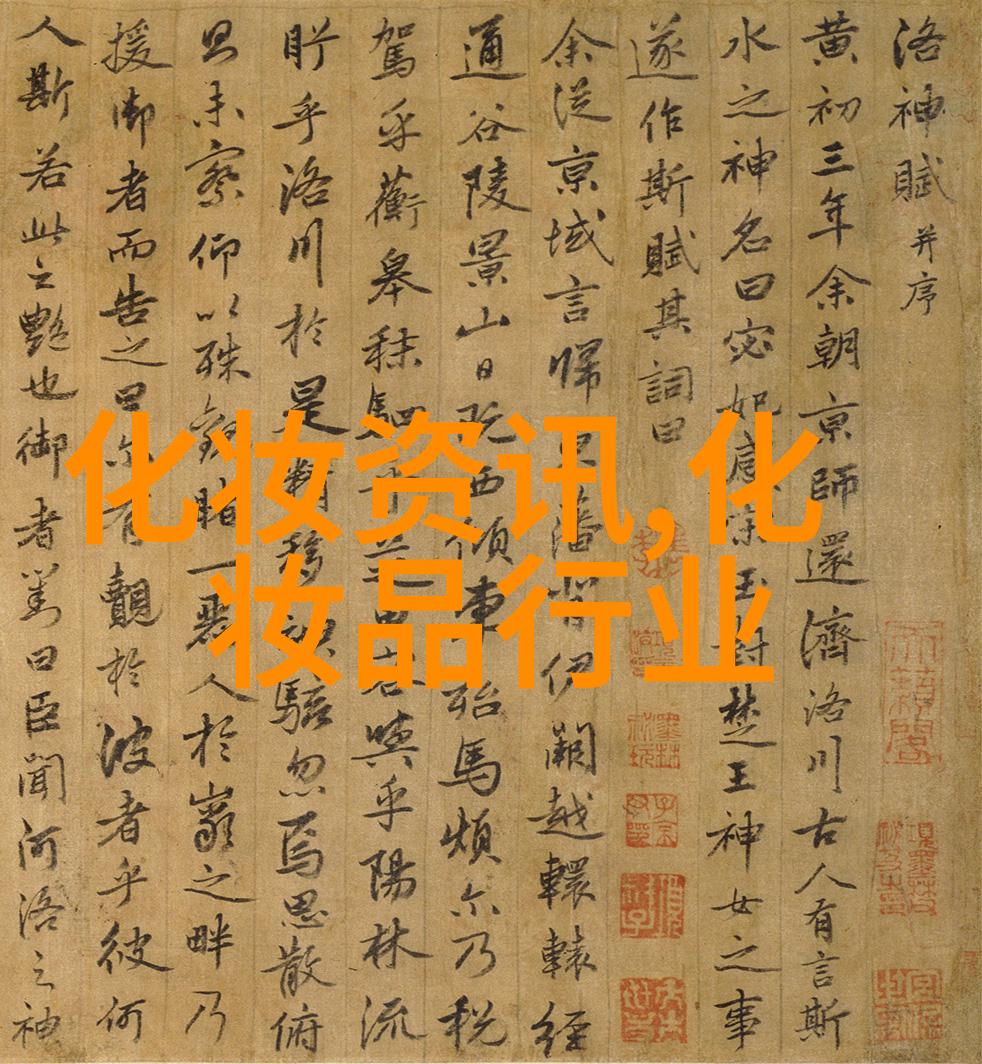 洛神賦 并序
黄初三年余朝京師還濟洛川古人有言斯
水之神名曰宓妃感宋玉對楚王神女之事
遂作斯賦其詞曰
余從京域言歸藩背伊闕越轘轅經
通谷陵景山日既西傾車殆馬煩尒乃税
駕乎蘅皋秣駟乎芝田容與乎陽林流
眄乎洛川於是精移神駭忽焉思散俯
則未察仰以殊觀睹一麗人於巖之畔乃
援御者而告之曰尔有覿於彼者乎彼何
人斯若此之艷也御者對曰臣聞河洛之神
化妆资讯,化
妆品行业